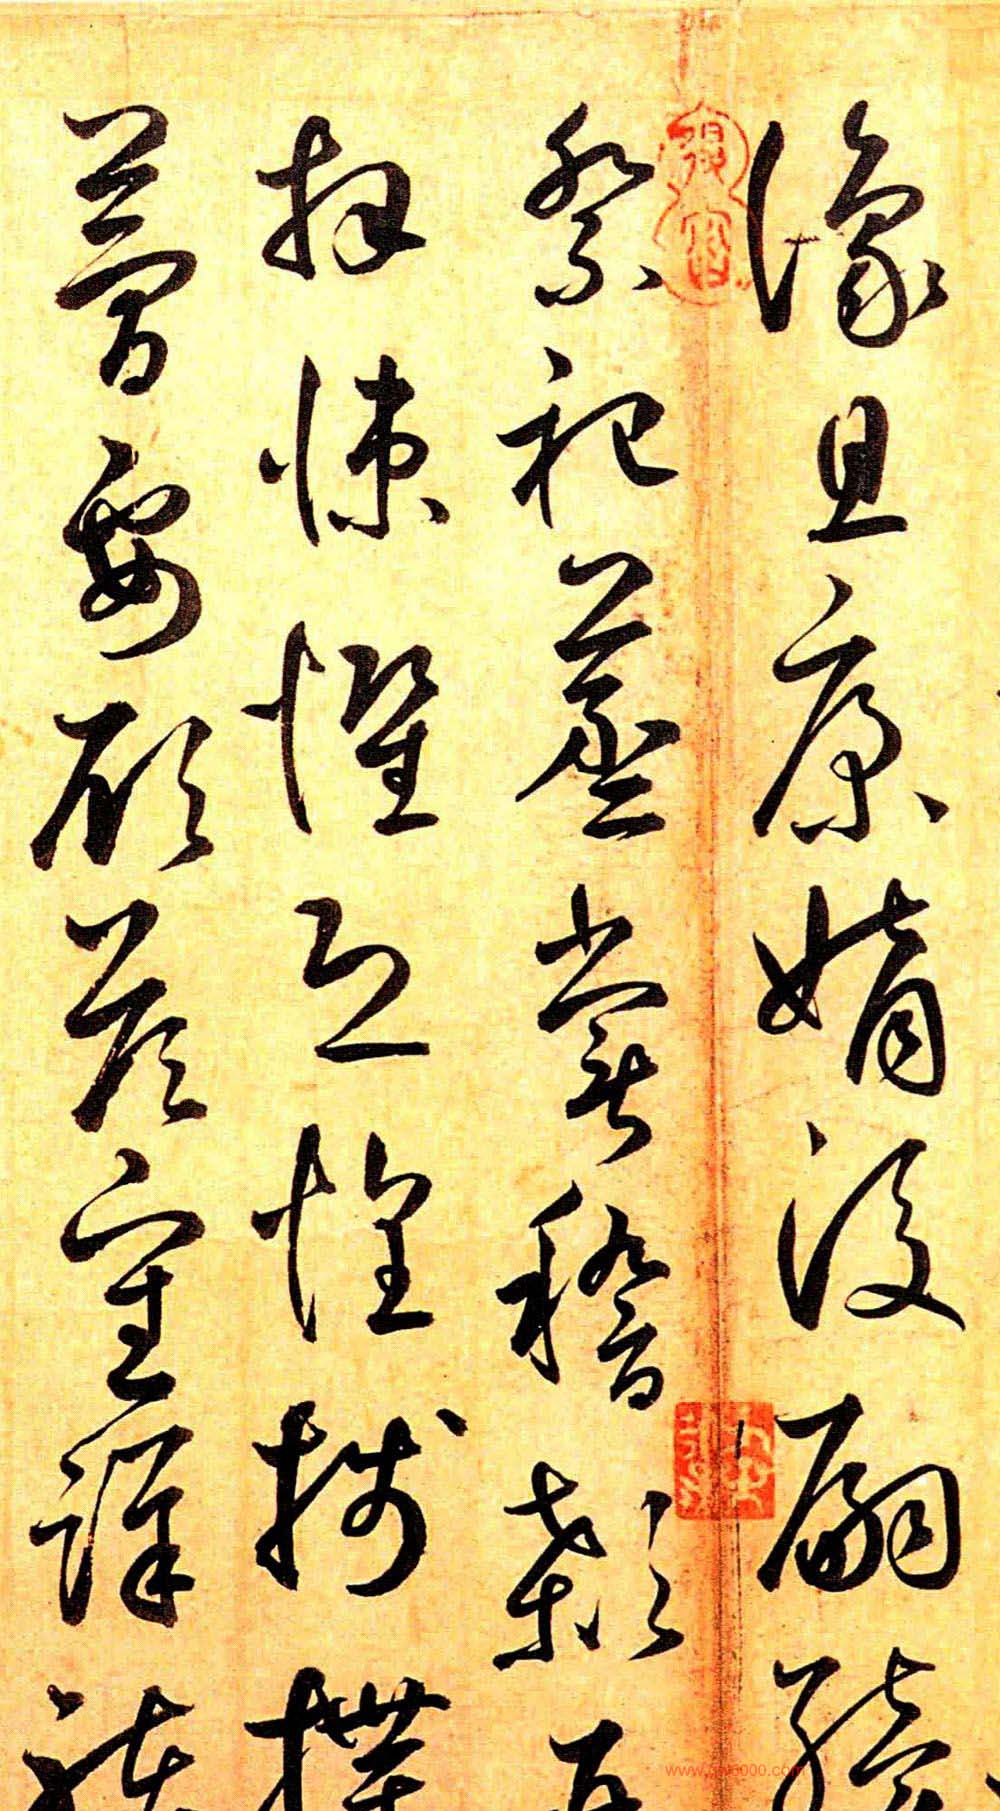 豫且康嫡後嗣續
祭祀蒸嘗稽顙再
拜悚懼恐惶牋牒
簡要顧答審詳骸